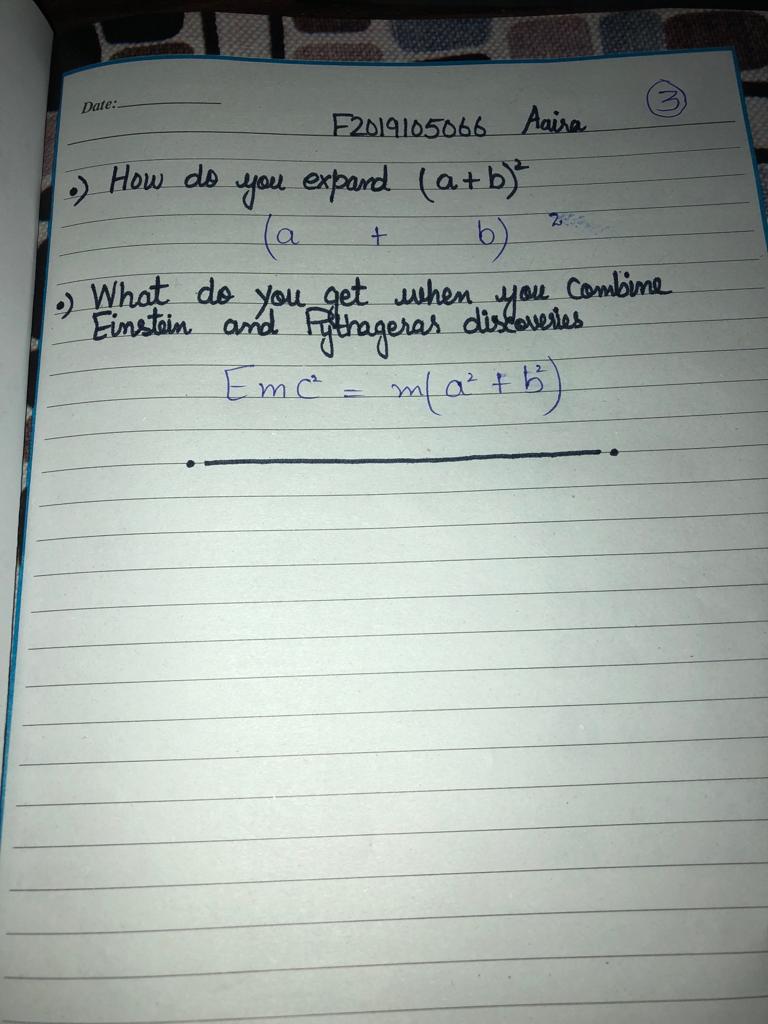 Date:
F2019105066 Aaira
③
•) How do you expand (a+b)²
(a + b) ²
•) What do you get when you Combine
Einstein and Pythageras discoveries
Emc² = m(a² + b²)